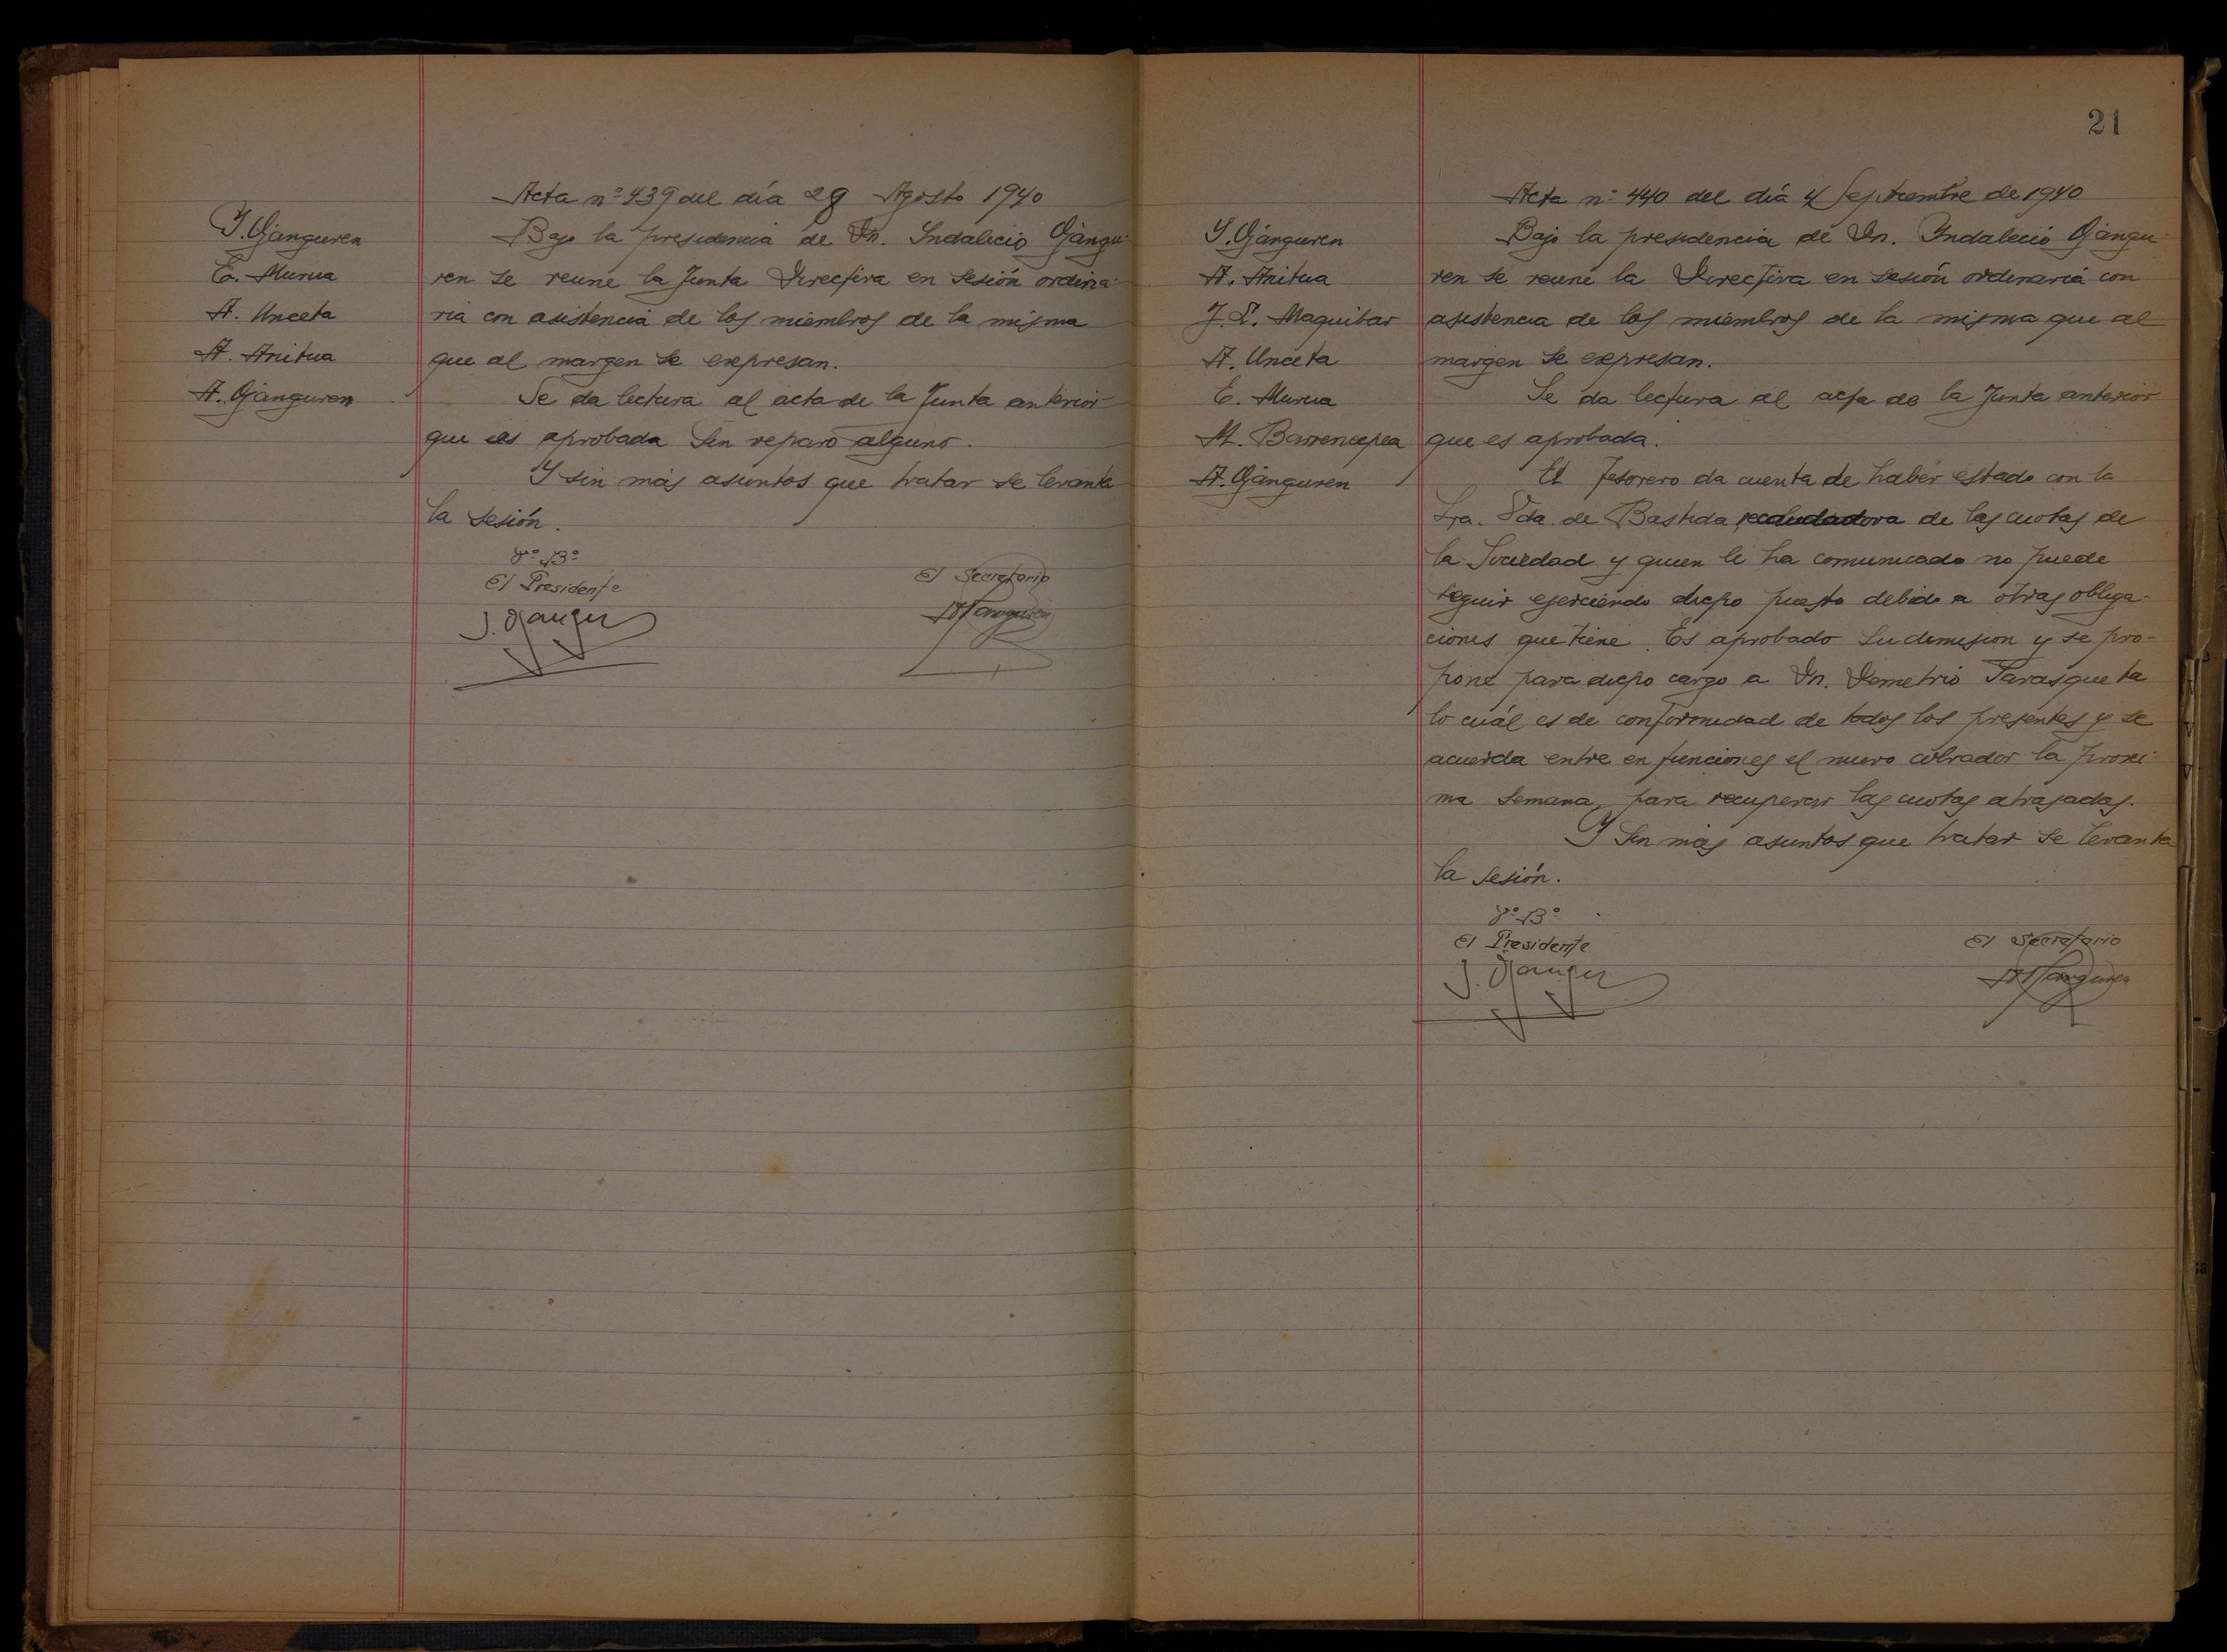 Acta nº 439 del día 28 Agosto 1940
I. Ojanguren
E. Murua
A. Unceta
A. Anitua
A. Ojanguren
Bajo la presidencia de Dn. Indalecio Ojangu-
ren se reune la Junta Directiva en sesión ordina-
ria con asistencia de los miembros de la misma
que al margen se expresan.
Se da lectura al acta de la Junta anterior
que es aprobada sin reparo alguno.
Y sin más asuntos que tratar se levanta
la sesión.
Vº Bº
El Presidente
El Secretario
I. Ojanguren
A. Ojanguren
21
Acta nº 440 del día 4 Septiembre de 1940
I. Ojanguren
A. Anitua
J. L. Maguibar
A. Unceta
E. Murua
M. Barrenechea
A. Ojanguren
Bajo la presidencia de Dn. Indalecio Ojangu-
ren se reune la Directiva en sesión ordinaria con
asistencia de los miembros de la misma que al
margen se expresan.
Se da lectura al acta de la Junta anterior
que es aprobada.
El Tesorero da cuenta de haber estado con la
Sra. Vda. de Bastida recaudadora de las cuotas de
la Sociedad y quien le ha comunicado no puede
seguir ejerciendo dicho puesto debido a otras obliga-
ciones que tiene. Es aprobado su dimision y se pro-
pone para dicho cargo a Dn. Demetrio Sarasqueta
lo cuál es de conformidad de todos los presentes y se
acuerda entre en funciones el nuevo cobrador la proxi-
ma semana, para recuperar las cuotas atrasadas.
Y sin más asuntos que tratar se levanta
la sesión.
Vº Bº
El Presidente
El Secretario
I. Ojanguren
A. Ojanguren